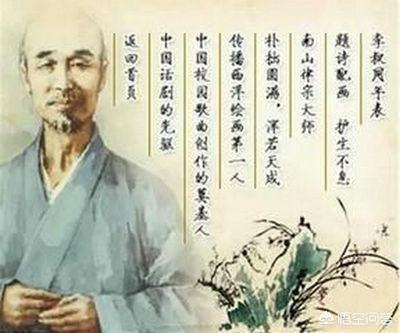 李叔同年表
题诗配画 护生不息
南山律宗大师
朴拙圆满，浑若天成
传播西洋绘画第一人
中国校园歌曲创作的奠基人
中国话剧的先驱
返回首页
悟空问答